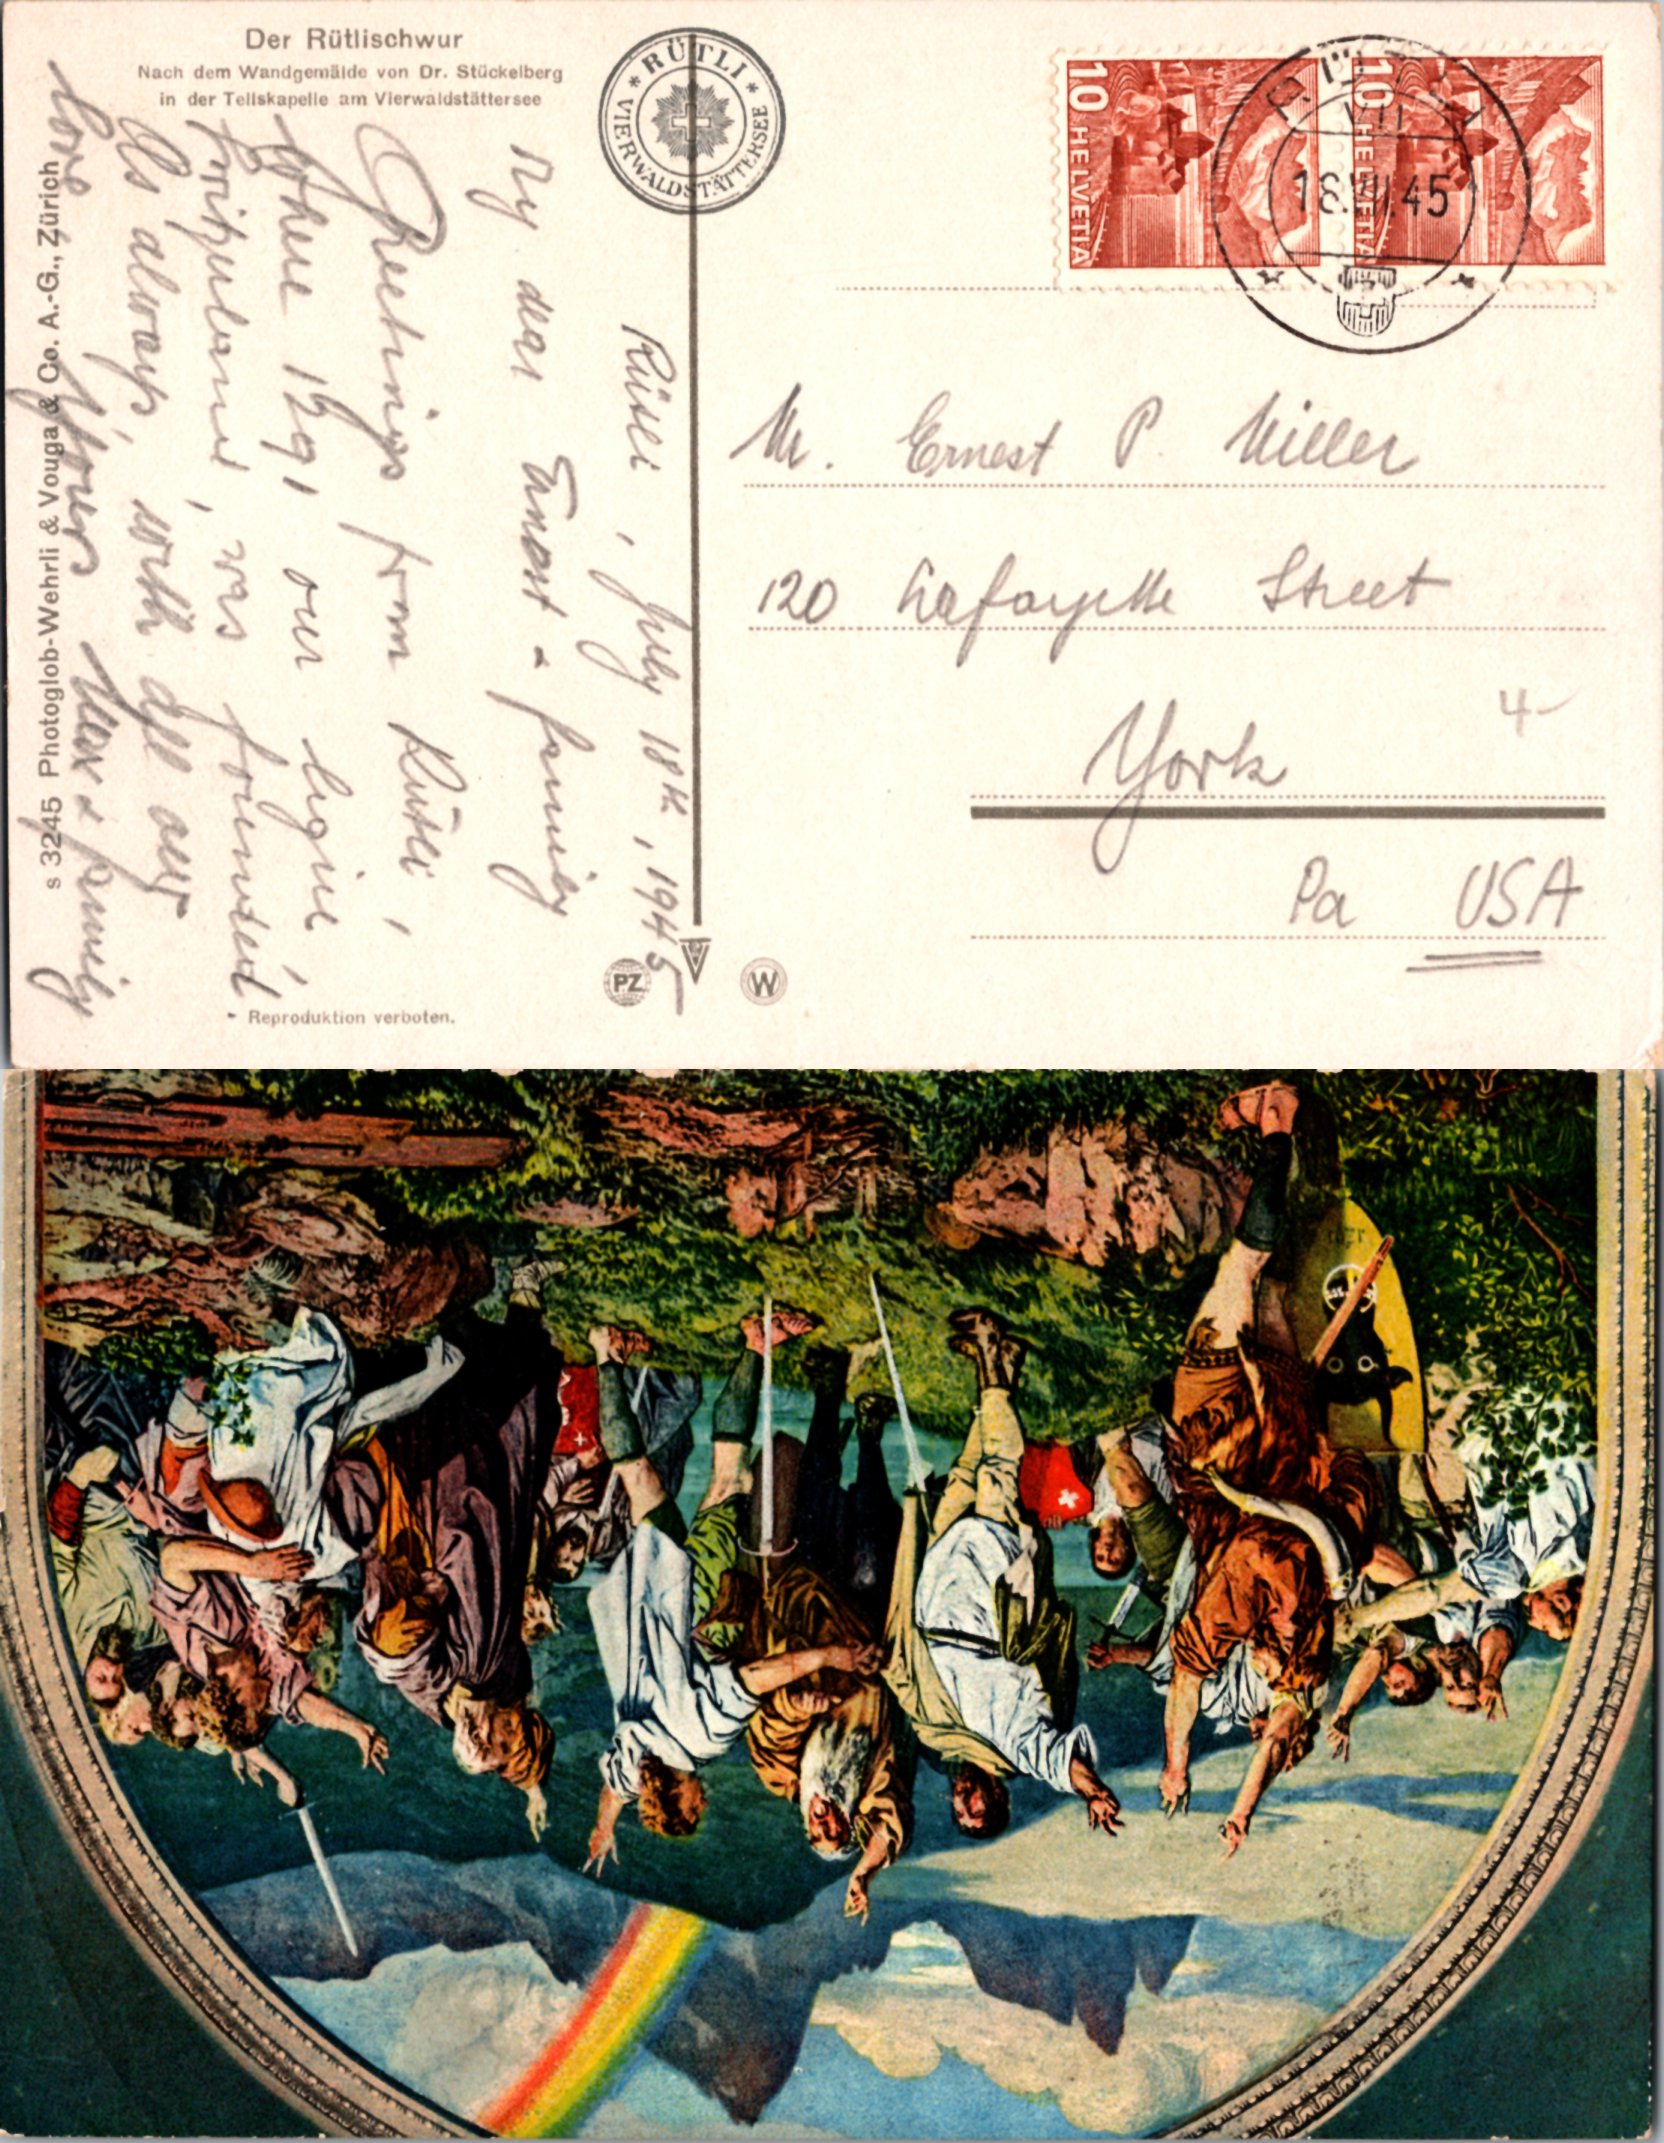 Der Rütlischwur
Nach dem Wandgemälde von Dr. Stückelberg
in der Tellskapelle am Vierwaldstättersee
* RÜTLI *
VIERWALDSTÄTTERSEE
10 HELVETIA
10 HELVETIA
RÜTLI
18.VII.45
Rütli, July 18th, 1945
My dear Ernest & family
Greetings from Rütli,
where 1291 our
was founded
As always, with all
love Yours Max & family
Mr. Ernest P. Miller
120 Lafayette Street
York
4-
Pa USA
s 3245 Photoglob-Wehrli & Vouga & Co. A.-G., Zürich
Reproduktion verboten.
PZ
W